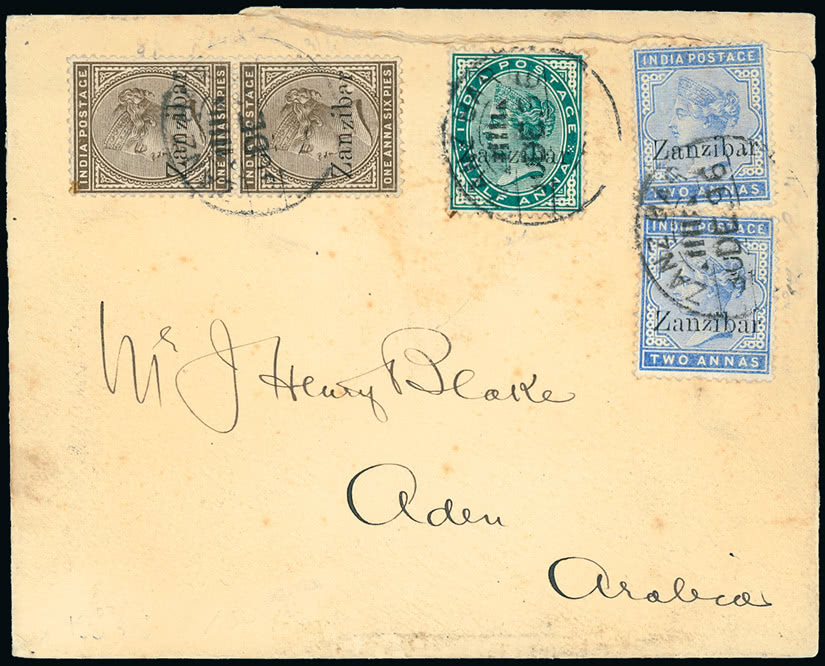 INDIA POSTAGE
ONE ANNA SIX PIES
Zanzibar
INDIA POSTAGE
ONE ANNA SIX PIES
Zanzibar
INDIA POSTAGE
HALF ANNA
Zanzibar
INDIA POSTAGE
Zanzibar
TWO ANNAS
INDIA POSTAGE
Zanzibar
TWO ANNAS
Mr J Henry Blake
Aden
Arabia